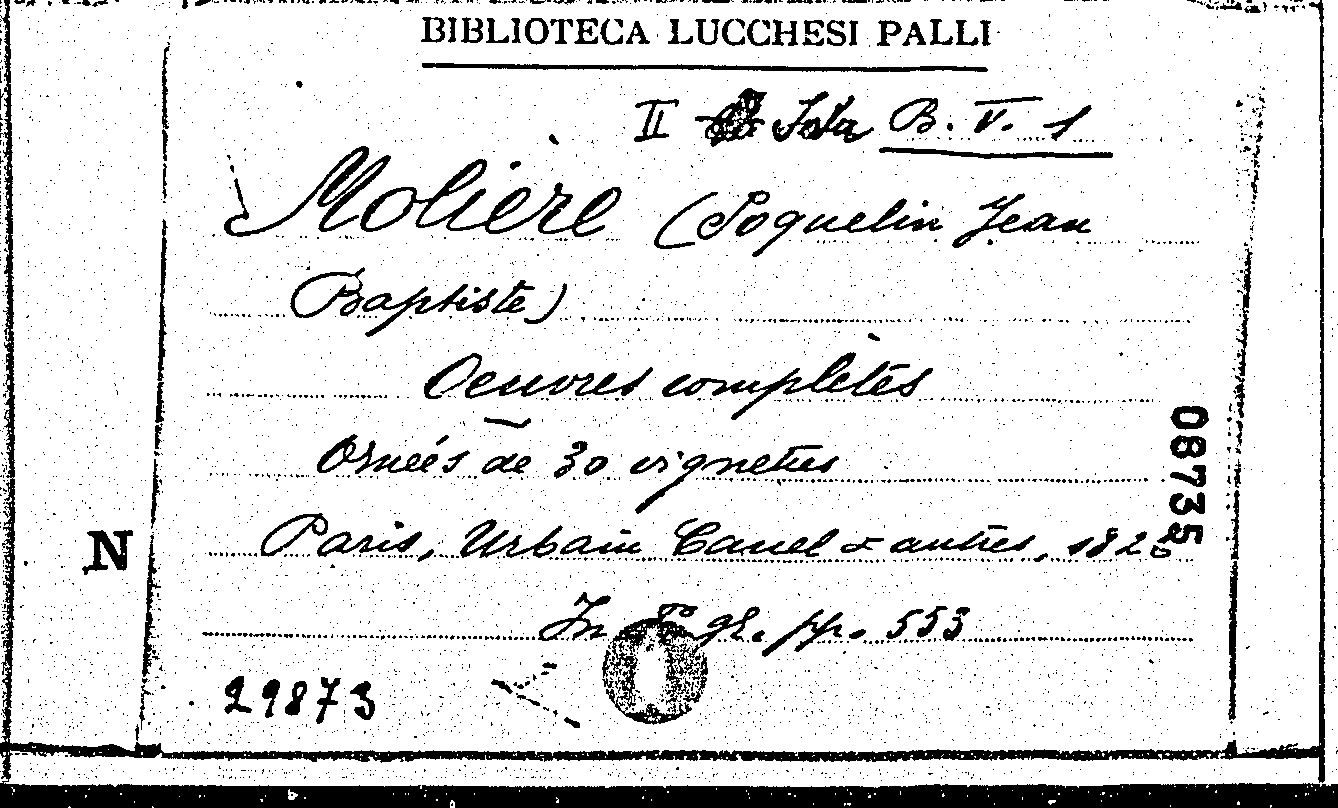 BIBLIOTECA LUCCHESI PALLI
II Sala B. V. 1
Molière (Poquelin Jean
Baptiste)
Oeuvres complètes
Ornées de 30 vignettes
08735
N
Paris, Urbain Canel & autres,
In 8º gr. pp. 553
29873